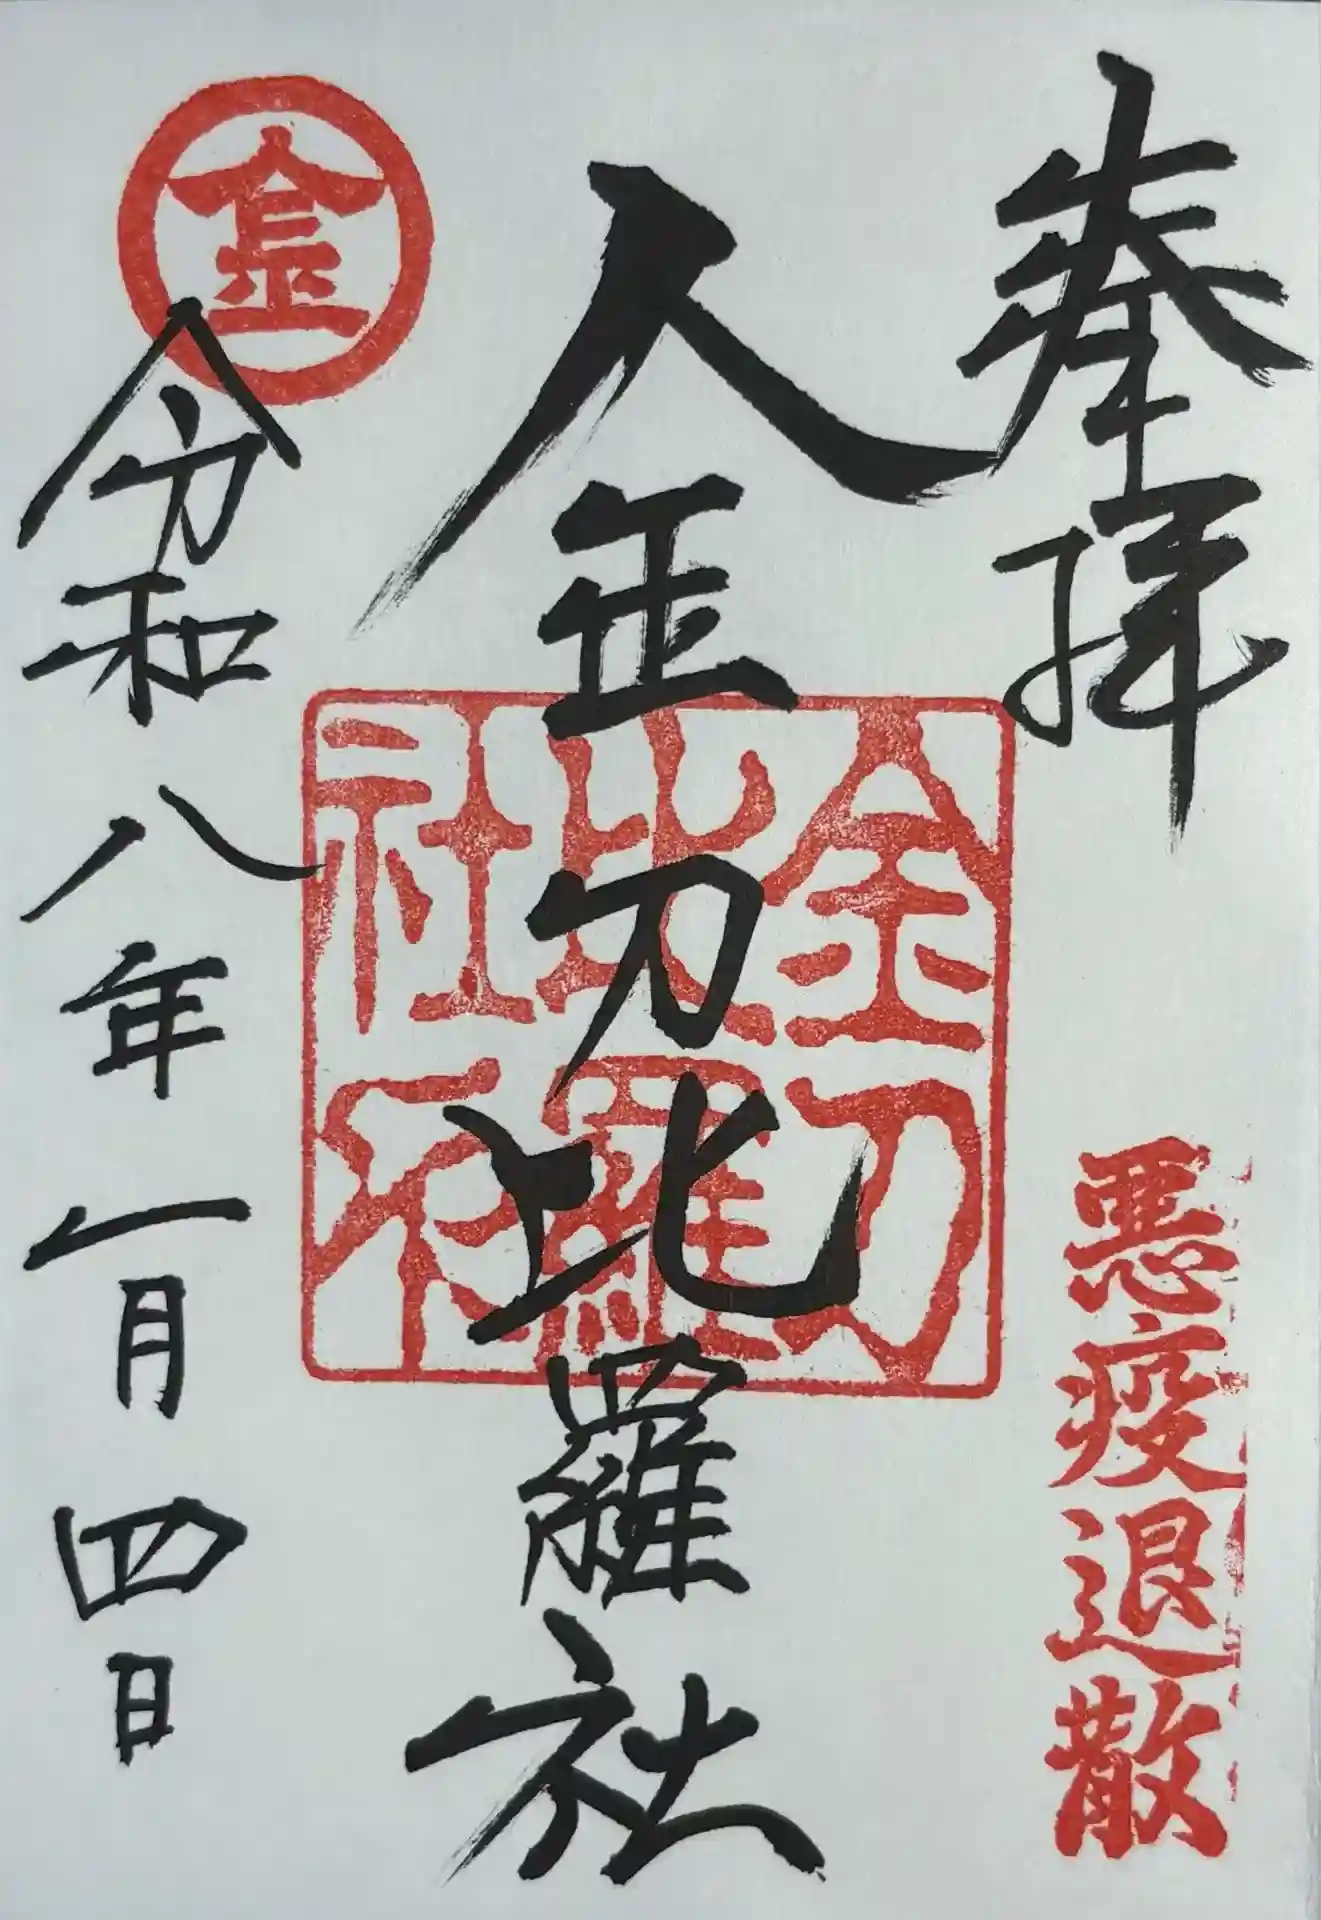 奉拝
悪疫退散
金刀比羅社
金刀
比羅
社
金
令和八年一月四日